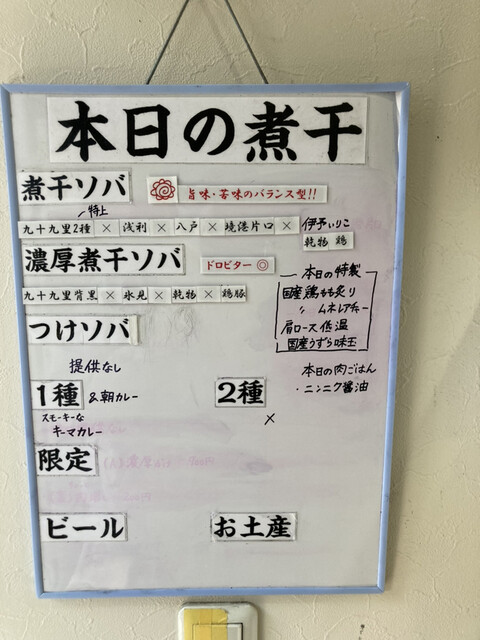 本日の煮干
煮干ソバ 旨味・苦味のバランス型!!
特上
九十九里2種 × 浅利 × 八戸 × 境港片口 × 伊予いりこ
乾物 鶏
濃厚煮干ソバ ドロビター◎
九十九里背黒 × 氷見 × 乾物 × 鶏豚
本日の特製
国産鶏もも炙り
〃 ムネレアチャー
肩ロース低温
国産うずら味玉
つけソバ
提供なし
本日の肉ごはん
・ニンニク醤油
1種 &朝カレー
スモーキーな
キーマカレー
2種
×
限定
ビール
お土産